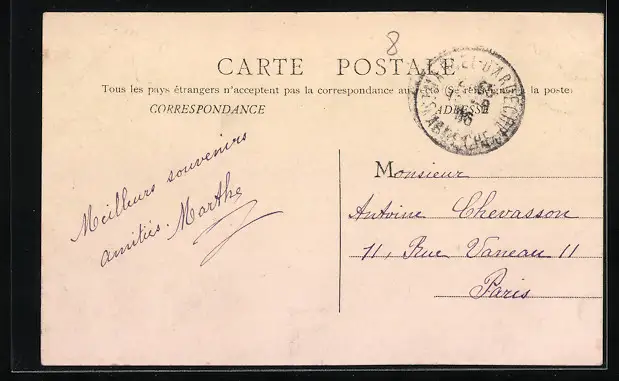 8
CARTE POSTALE
Tous les pays étrangers n'acceptent pas la correspondance au la poste
CORRESPONDANCE
ADRESSE
Meilleurs souvenirs
amitiés. Marthe
Monsieur
Antoine Chevasson
11, Rue Vaneau 11
Paris